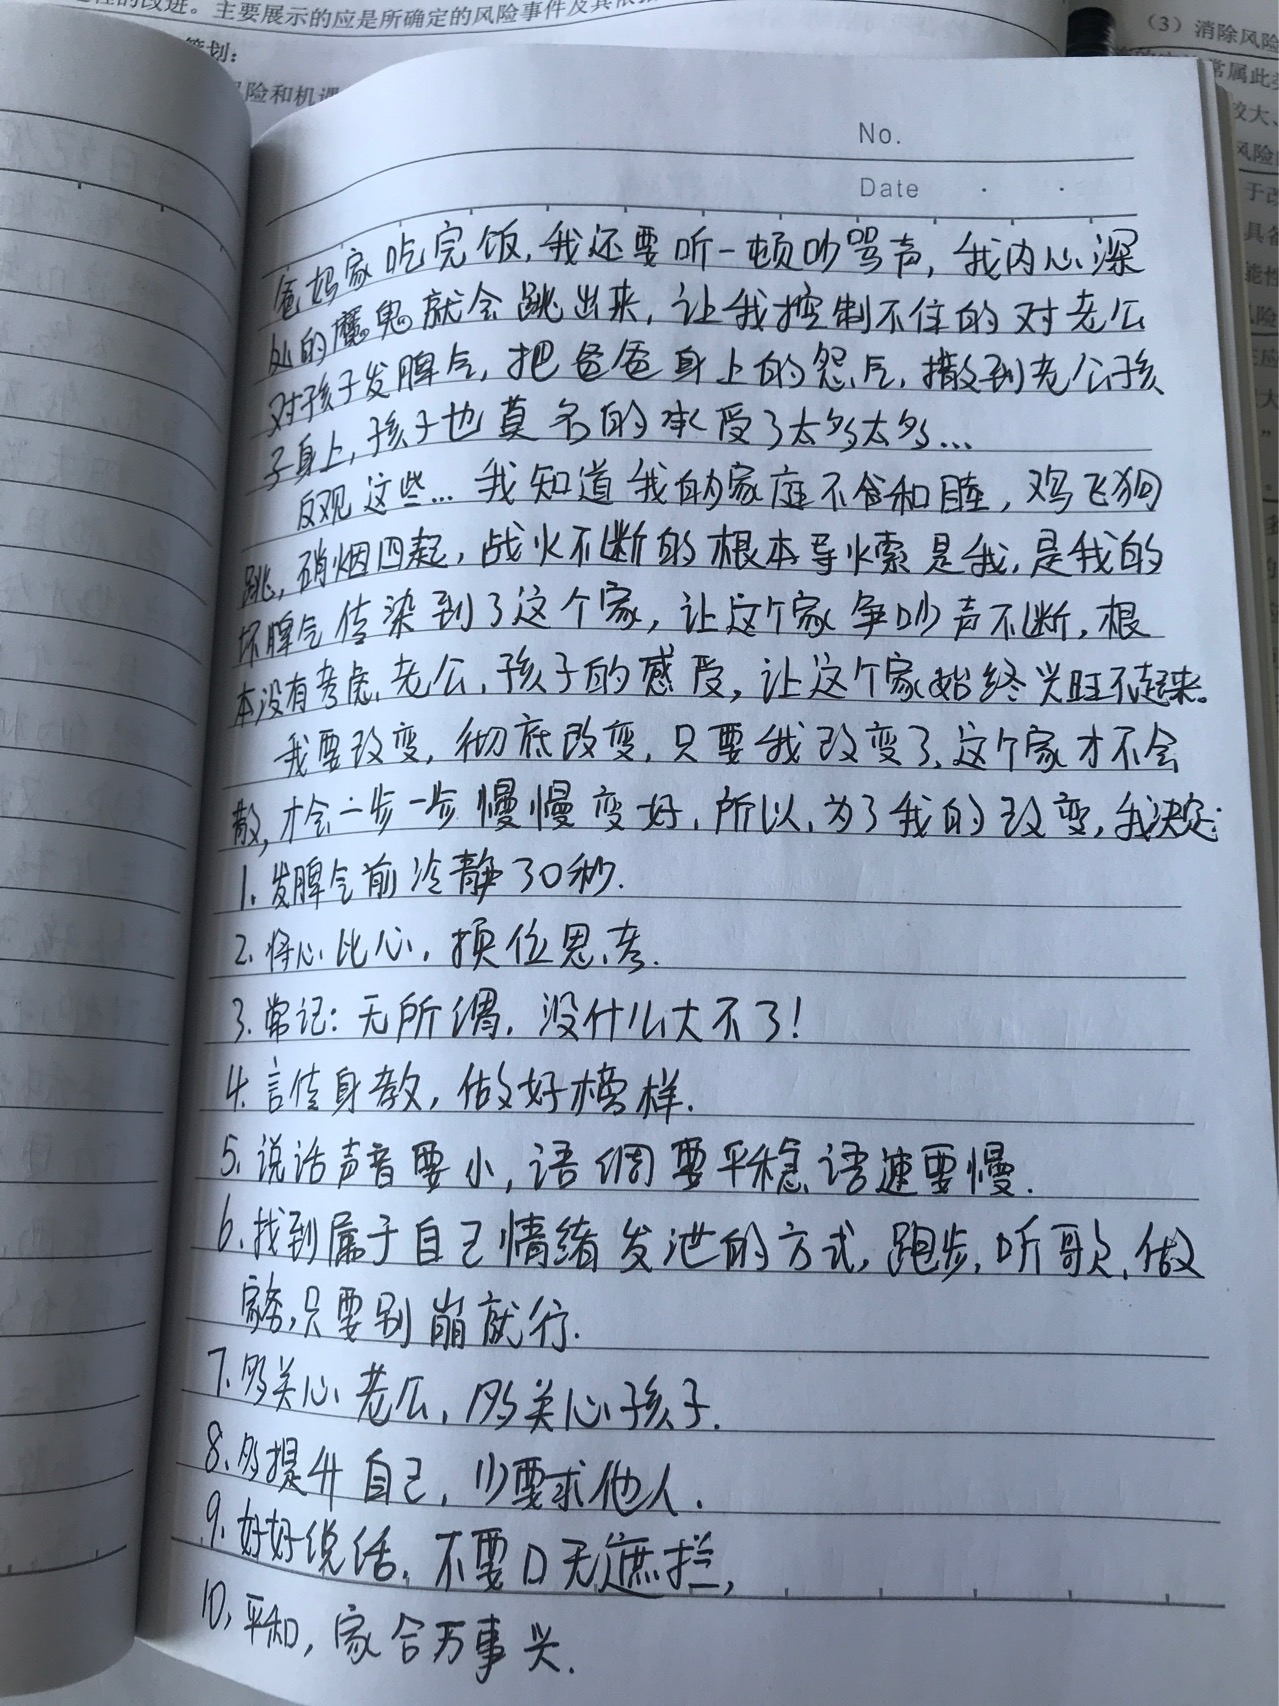 性的改进。主要展示的应是所确定的风险事件及其依据
策划：
风险和机遇
（3）消除风险
常属此类
较大、
风险
于改
具备
能性
风险
No.
Date
爸妈家吃完饭，我还要听一顿吵骂声，我内心深
处的魔鬼就会跳出来，让我控制不住的对老公
对孩子发脾气，把爸爸身上的怨气，撒到老公孩
子身上，孩子也莫名的承受了太多太多...
反观这些...我知道我的家庭不会和睦，鸡飞狗
跳，硝烟四起，战火不断的根本导火索是我，是我的
坏脾气传染到了这个家，让这个家争吵声不断，根
本没有考虑老公，孩子的感受，让这个家始终兴旺不起来。
我要改变，彻底改变，只要我改变了，这个家才不会
散，才会一步一步慢慢变好，所以，为了我的改变，我决定：
1、发脾气前冷静30秒.
2、将心比心，换位思考.
3、常记：无所谓，没什么大不了！
4、言传身教，做好榜样.
5、说话声音要小，语调要平稳，语速要慢.
6、找到属于自己情绪发泄的方式，跑步，听歌，做
家务，只要别崩就行.
7、多关心老公，多关心孩子.
8、多提升自己，少要求他人.
9、好好说话，不要口无遮拦，
10，平和，家合万事兴.